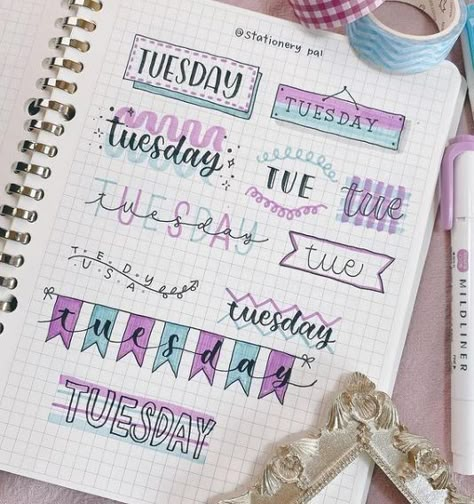 @stationery pal
TUESDAY
TUESDAY
tuesday
TUE
tue
TUESDAY
tuesday
tue
T E D Y
U S A
tuesday
tuesday
TUESDAY
MILDLINER